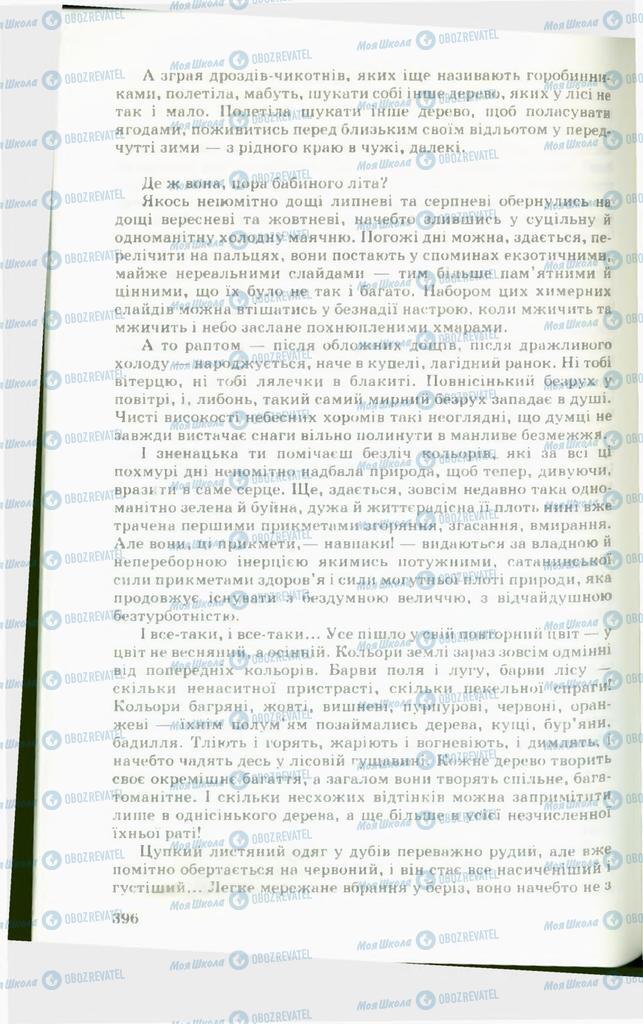 А зграя дроздів-чикотнів, яких іще називають горобинни-
ками, полетіла, мабуть, шукати собі інше дерево, яких у лісі не
так і мало. Полетіла шукати інше дерево, щоб поласувати
ягодами, поживитись перед близьким своїм відльотом у перед-
чутті зими — з рідного краю в чужі, далекі.
Де ж вона, пора бабиного літа?
Якось непомітно дощі липневі та серпневі обернулись на
дощі вересневі та жовтневі, начебто злившись у суцільну й
одноманітну холодну маячню. Погожі дні можна, здається, пе-
релічити на пальцях, вони постають у споминах екзотичними,
майже нереальними слайдами — тим більше пам'ятними й
цінними, що їх було не так і багато. Набором цих химерних
слайдів можна втішатись у безнадії настрою, коли мжичить та
мжичить і небо заслане похнюпленими хмарами.
А то раптом — після обложних дощів, після дражливого
холоду — народжується, наче в купелі, лагідний ранок. Ні тобі
вітерцю, ні тобі лялечки в блакиті. Повнісінький безрух у
повітрі, і, либонь, такий самий мирний безрух западає в душі.
Чисті високості небесних хоромів такі неоглядні, що думці не
завжди вистачає снаги вільно полинути в манливе безмежжя.
І зненацька ти помічаєш безліч кольорів, які за всі ці
похмурі дні непомітно надбала природа, щоб тепер, дивуючи,
вразити в саме серце. Ще, здається, зовсім недавно така одно-
манітно зелена й буйна, дужа й життєрадісна її плоть нині вже
трачена першими прикметами згоряння, згасання, вмирання.
Але вони, ці прикмети,— навпаки! — видаються за владною й
непереборною інерцією якимись потужними, сатанинської
сили прикметами здоров'я і сили могутньої плоті природи, яка
продовжує існувати з бездумною величчю, з відчайдушною
безтурботністю.
І все-таки, і все-таки... Усе пішло у свій повторний цвіт — у
цвіт не весняний, а осінній. Кольори землі зараз зовсім одмінні
від попередніх кольорів. Барви поля і лугу, барви лісу —
скільки ненаситної пристрасті, скільки пекельної спраги!
Кольори багряні, жовті, вишневі, пурпурові, червоні, оран-
жеві — їхнім полум'ям позаймались дерева, кущі, бур'яни,
бадилля. Тліють і горять, жаріють і вогневіють, і димлять, і
начебто чадять десь у лісовій гущавині. Кожне дерево творить
своє окремішнє багаття, а загалом вони творять спільне, бага-
томанітне. І скільки несхожих відтінків можна запримітити
лише в однісінького дерева, а ще більше в усієї незчисленної
їхньої раті!
Цупкий листяний одяг у дубів переважно рудий, але вже
помітно обертається на червоний, і він стає все насиченіший і
густіший... Легке мережане вбрання у беріз, воно начебто не з
396